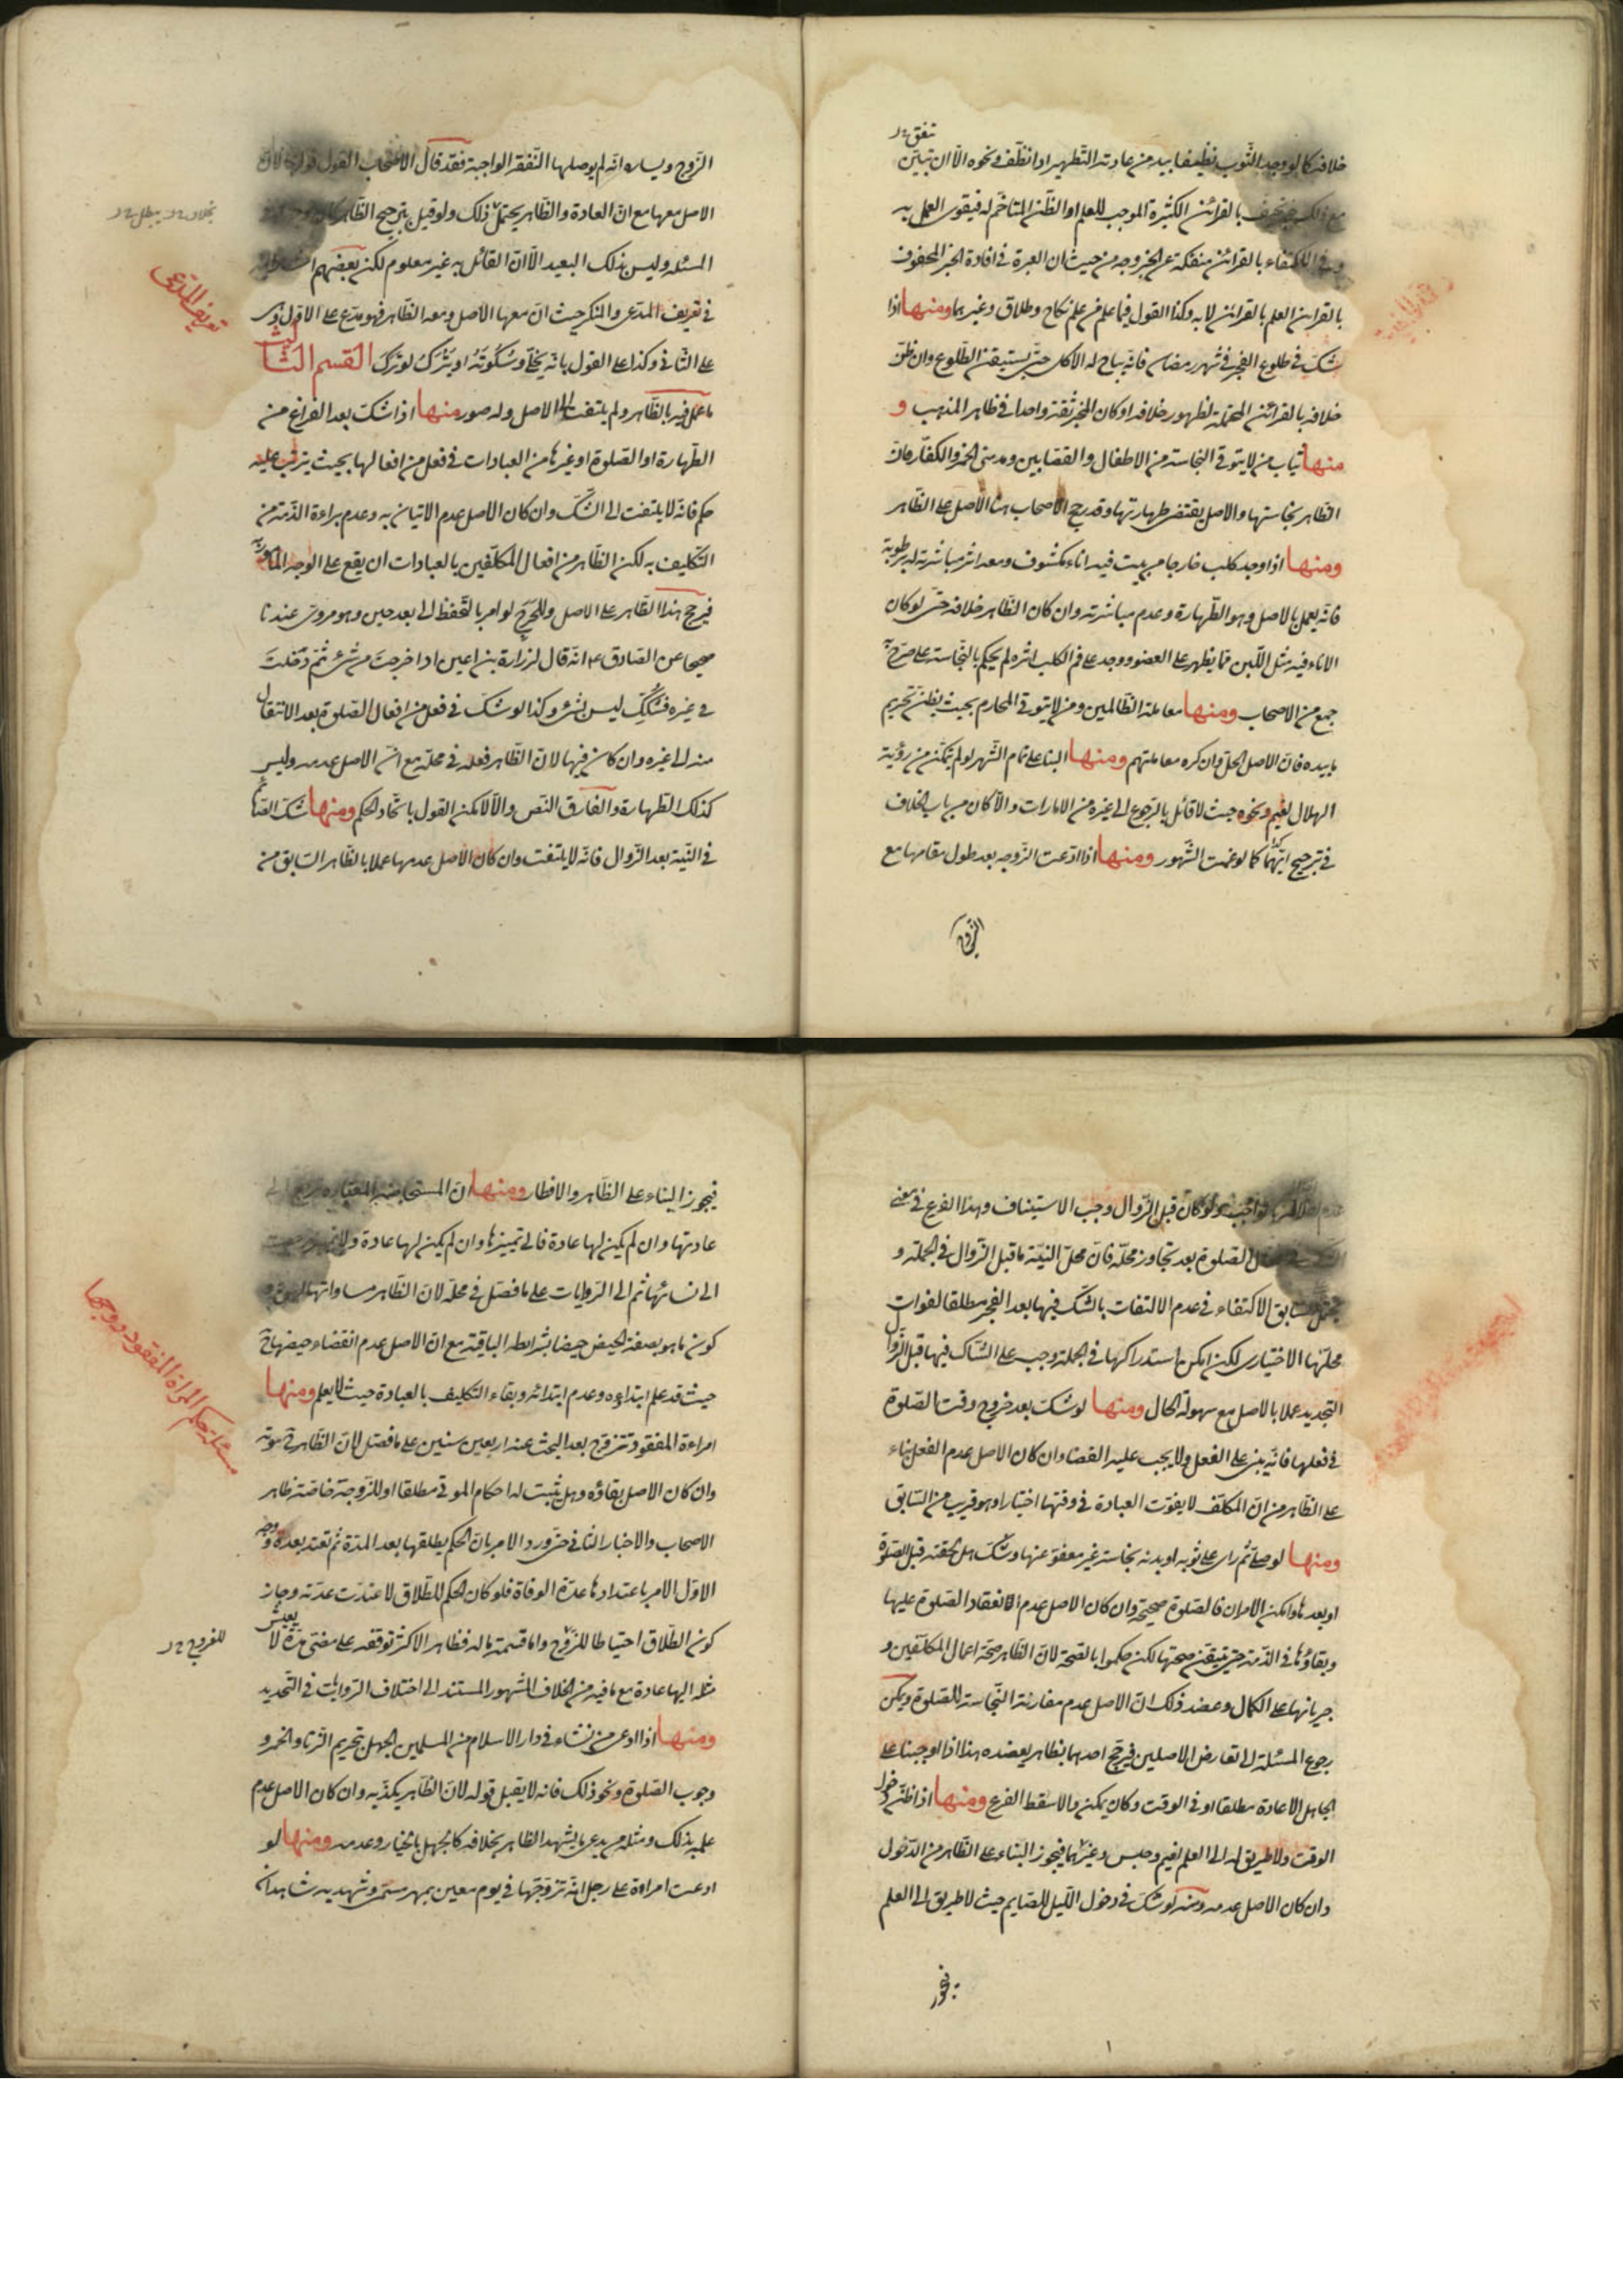 خلافه كما لو وجد الثوب نظيفا بيد من عادته التطهير او انظف ونحوه الا ان تبين
بالقرائن الكثيرة الموجب للعلم او الظن المتاخم له فيقوى العمل به
الاكتفاء بالقرائن منفكة عن الخبر وجه من حيث ان العبرة في افادة الخبر المحفوف
بالقرائن العلم بالقرائن لا به وكذا القول فيما علم من علم نكاح وطلاق وغيرهما ومنها اذا
شك في طلوع الفجر في شهر رمضان فانه يباح له الاكل حتى يستيقن الطلوع وان ظن
خلافه بالقرائن المحتملة لظهور خلافه او كان المخبر ثقة واحدا في ظاهر المذهب و
منها ثياب من لا يتوقى النجاسة من الاطفال والقصابين ومدمنى الخمر والكفار فان
الظاهر نجاستها والاصل يقتضى طهارتها وقد رجح الاصحاب هنا الاصل على الظاهر
ومنها اذا وجد كلب خارجا من بيت فيه اناء مكشوف ومعه اثر مباشرته له برطوبة
فانه يعمل بالاصل وهو الطهارة وعدم مباشرته وان كان الظاهر خلافه حتى لو كان
الاناء فيه مثل اللبن مما يظهر على العضو ووجد على فم الكلب اثره لم يحكم بالنجاسة على ما صرح به
جمع من الاصحاب ومنها معاملة الظالمين ومن لا يتوقى المحارم بحيث يظن تحريم
ما بيده فان الاصل الحل وان كره معاملتهم ومنها البناء على تمام الشهر لو لم يتمكن من رؤية
الهلال لغيم ونحوه حيث لا قائل بالرجوع الى غيره من الامارات والا كان من باب الخلاف
في ترجيح ايهما كما لو غمت الشهور ومنها اذا ادعت الزوجة بعد طول مقامها مع
الزوج
الزوج ويساره انه لم يوصلها النفقة الواجبة فقد قال الاصحاب القول قولها لان
الاصل معها مع ان العادة والظاهر يحتمل ذلك ولو قيل بترجيح الظاهر كان
المسئلة وليس بذلك البعيد الا ان القائل به غير معلوم لكن بعضهم
في تعريف المدعى والمنكر حيث ان معها الاصل ومعه الظاهر فهو مدع على الاول وهى
على الثانى وكذا على القول بانه يخلى وسكوته او يترك لو ترك القسم الثالث
ما عمل فيه بالظاهر ولم يلتفت الى الاصل وله صور منها اذا شك بعد الفراغ من
الطهارة او الصلوة او غيرها من العبادات في فعل من افعالها بحيث يترتب عليه
حكم فانه لا يلتفت الى الشك وان كان الاصل عدم الاتيان به وعدم براءة الذمة من
التكليف به لكن الظاهر من افعال المكلفين بالعبادات ان يقع على الوجه المامور به
فيرجح هذا الظاهر على الاصل وللحرج لو امر بالتحفظ الى بعد حين وهو مروى عندنا
صحيحا عن الصادق ع انه قال لزرارة بن اعين اذا خرجت من شئ ثم دخلت
في غيره فشكك ليس بشئ وكذا لو شك في فعل من افعال الصلوة بعد الانتقال
منه الى غيره وان كان فيها لان الظاهر فعله في محله مع ان الاصل عدمه وليس
كذلك الطهارة والفارق النص والا لامكن القول باتحاد الحكم ومنها شك الصائم
في النية بعد الزوال فانه لا يلتفت وان كان الاصل عدمها عملا بالظاهر السابق من
تعريف المدعى
ولو كان قبل الزوال وجب الاستيناف وهذا الفرع في معنى
الصلوة بعد تجاوز محله فان محل النية ما قبل الزوال في الجملة و
السابق الاكتفاء في عدم الالتفات بالشك فيها بعد الفجر مطلقا لفوات
محلها الاختيارى لكن امكن استدراكها في الجملة وجب على الشاك فيها قبل الزوال
التجديد عملا بالاصل مع سهولة الحال ومنها لو شك بعد خروج وقت الصلوة
في فعلها فانه يبنى على الفعل ولا يجب عليه القضاء وان كان الاصل عدم الفعل بناء
على الظاهر من ان المكلف لا يفوت العبادة في وقتها اختيارا وهو قريب من السابق
ومنها لو صلى ثم راى على ثوبه او بدنه نجاسة غير معفو عنها وشك هل لحقته قبل الصلوة
او بعدها وامكن الامران فالصلوة صحيحة وان كان الاصل عدم انعقاد الصلوة عليها
وبقاؤها في الذمة حتى يتيقن صحتها لكن حكموا بالصحة لان الظاهر صحة اعمال المكلفين و
جريانها على الكمال وعضد ذلك ان الاصل عدم مقارنة النجاسة للصلوة ويمكن
رجوع المسئلة الى تعارض الاصلين فيرجح احدهما بظاهر يعضده هذا اذا اوجبنا على
الجاهل الاعادة مطلقا او في الوقت وكان يمكن والا سقط الفرع ومنها اذا ظن دخول
الوقت ولا طريق له الى العلم لغيم وحبس وغيرهما فيجوز البناء على الظاهر من الدخول
وان كان الاصل عدمه ومنه لو شك في دخول الليل للصايم حيث لا طريق الى العلم
فيجوز
فيجوز البناء على الظاهر والافطار ومنها ان المستحاضة المعتادة ترجع الى
عادتها وان لم يكن لها عادة فالى تميزها وان لم يكن لها عادة ولا تميز رجعت
الى نسائها ثم الى الروايات على ما فصل في محله لان الظاهر مساواتها لهن و
كون ما هو بصفة الحيض حيضا بشرائطه الباقية مع ان الاصل عدم انقضاء حيضها
حيث قد علم ابتداءه وعدم ابتدائه وبقاء التكليف بالعبادة حيث لا يعلم ومنها
امراءة المفقود تتزوج بعد البحث عنه اربع سنين على ما فصل لان الظاهر موته
وان كان الاصل بقاؤه وهل يثبت له احكام الموتى مطلقا او للزوجة خاصة ظاهر
الاصحاب والاخبار الثانى حتى ورد الامر بان الحاكم يطلقها بعد المدة ثم تعتد بعده ووجه
الاول الامر باعتدادها عدة الوفاة فلو كان الحكم للطلاق لاعتدت عدته وجاز
كون الطلاق احتياطا للفروج واما قسمة ماله فظاهر الاكثر توقفه على مضى مدة لا يعيش
مثله اليها عادة مع ما فيه من الخلاف المشهور المستند الى اختلاف الروايات في التحديد
ومنها اذا ادعى من نشاء في دار الاسلام من المسلمين الجهل بتحريم الزنا والخمر و
وجوب الصلوة ونحو ذلك فانه لا يقبل قوله لان الظاهر يكذبه وان كان الاصل عدم
علمه بذلك ومثله من يدعى ما يشهد الظاهر بخلافه كالجهل بالخيار وعدمه ومنها لو
ادعت امراءة على رجل انه تزوجها في يوم معين بمهر مسمى وشهد به شاهدان
مسئلة حكم المراة المفقود زوجها
للفروج